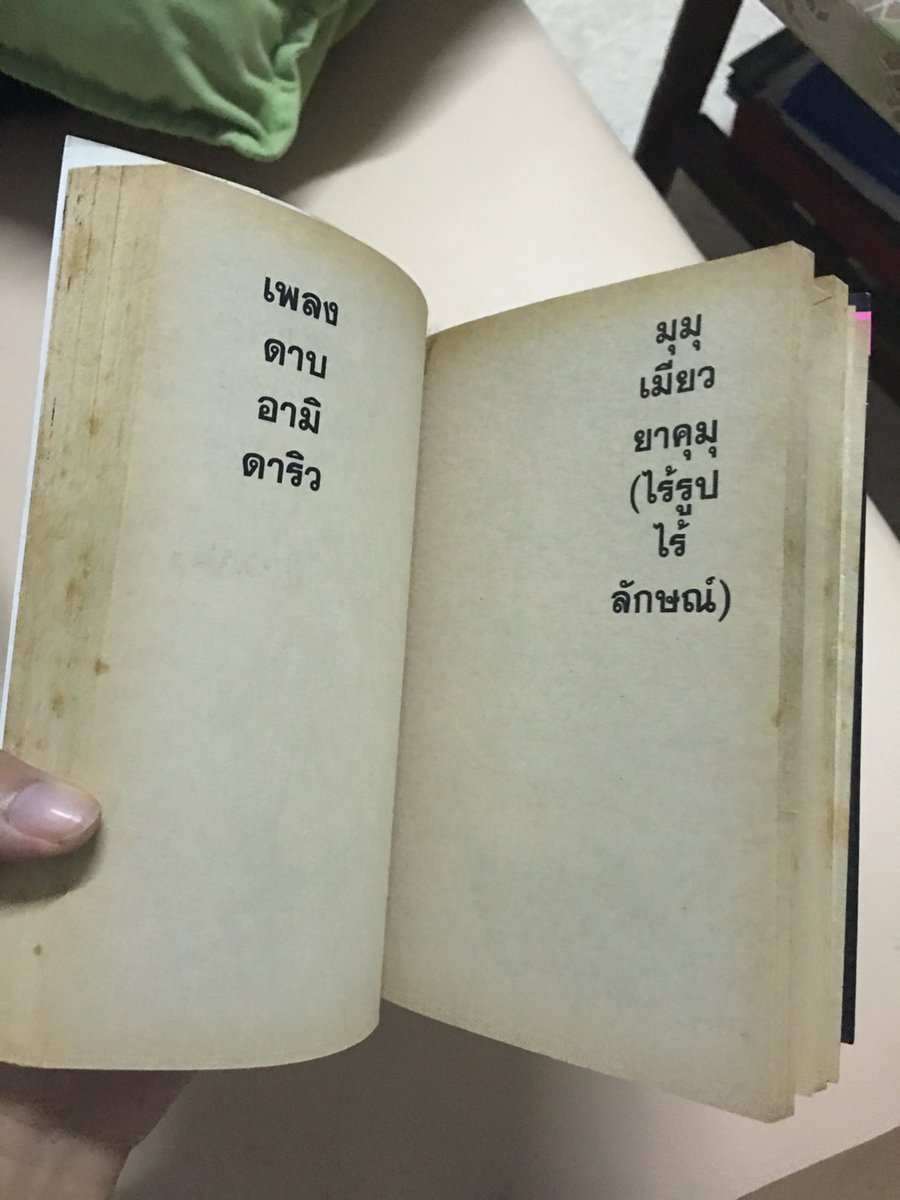 เพลง
ดาบ
อามิ
ดาริว
มุมุ
เมียว
ยาคุมุ
(ไร้รูป
ไร้
ลักษณ์)